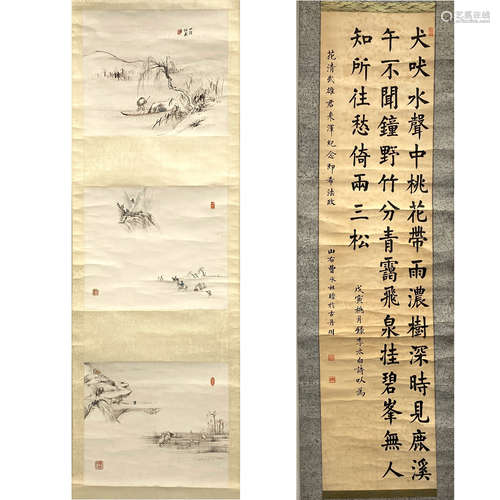 犬吠水聲中桃花帶雨濃樹深時見鹿溪
午不聞鐘野竹分青靄飛泉挂碧峯無人
知所往愁倚兩三松
戊寅桃月錄李太白詩以為
花清武雄君來澤紀念即希法政
山右曹
艺狐在线